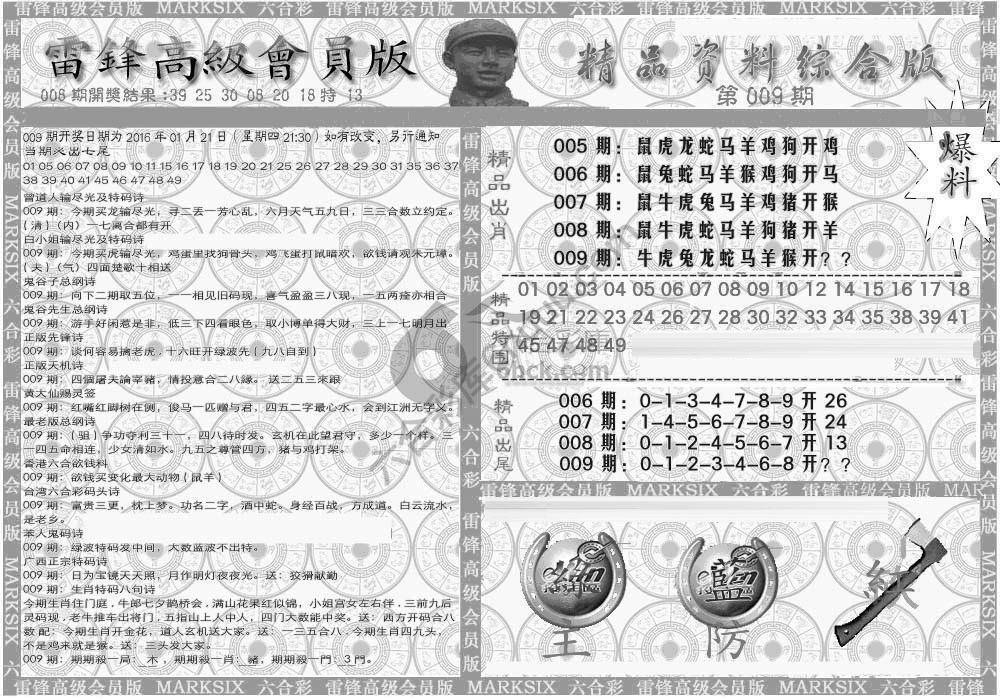 雷鋒高級會員版
精品资料综合版
008期開獎結果:39 25 30 08 20 18 特 13
第 009 期
009 期开奖日期为 2016 年 01 月 21 日 ( 星期四 21:30 ) 如有改变，另行通知
当期必出七尾
01 05 06 07 08 09 10 11 15 16 17 18 19 20 21 25 26 27 28 29 30 31 35 36 37
38 39 40 41 45 46 47 48 49
曾道人输尽光及特码诗
009 期：今期买龙输尽光，寻二丢一芳心乱，六月天气五九日，三三合数立约定。
( 清 )（内）一七离合都有开
白小姐输尽光及特码诗
009 期：今期买虎输尽光，鸡蛋里找狗骨头，鸡飞蛋打鼠暗欢，欲钱请观朱元璋。
( 夫 )（气）四面楚歌十相送
鬼谷子总纲诗
009 期：向下二期取五位，一一相见旧码现，喜气盈盈三八现，一五两痊亦相合
鬼谷先生总纲诗
009 期：游手好闲惹是非，低三下四看眼色，取小博单得大财，三上一七明月出
正版先锋诗
009 期：谈何容易擒老虎，十六旺开绿波先 ( 九八自到 )
正版天机诗
009 期：四個屠夫論宰豬，情投意合二八緣。送二五三來跟
黄大仙赐灵签
009 期：红嘴红脚树在侧，俊马一匹赠与君，四五二字最心水，会到江洲无字义。
最老版总纲诗
009 期：( 诅 ) 争功夺利三十一，四八待时发。玄机在此望君守，多少一个样。三
一四五命相连，少女清如水。九五之尊管四方，猪与鸡打架。
香港六合欲钱料
009 期：欲钱买变化最大动物 ( 鼠羊 )
台湾六合彩码头诗
009 期：富贵三更，枕上梦。功名二字，酒中蛇。身经百战，方成道。白云流水，
是老乡。
苯人鬼码诗
009 期：绿波特码发中间，大数蓝波不出特。
广西正宗特码诗
009 期：日为宝镜天天照，月作明灯夜夜光。送：狡猾献勤
009 期：生肖特码八句诗
今期生肖住门庭，牛郎七夕鹊桥会，满山花果红似锦，小姐宫女左右伴，三前九后
灵码现，老牛推车出将门，五指山上人中人，四门大数能中奖。送：西方开码合八
数 配：今期生肖开金花，道人玄机送大家。送：一三五合八，今期生肖四九头，
不是鸡来就是猴。送：三头发大家。
009 期：期期殺一局：木，期期殺一肖：豬，期期殺一門：3 門。
精品出肖
005 期：鼠虎龙蛇马羊鸡狗开鸡
006 期：鼠兔蛇马羊猴鸡狗开马
007 期：鼠牛虎兔马羊鸡猪开猴
008 期：鼠牛虎蛇马羊狗猪开羊
009 期：牛虎兔龙蛇马羊猴开？？
爆料
精品特围
01 02 03 04 05 06 07 08 09 10 11 12 14 15 16 17 18
19 21 22 23 24 26 27 28 29 30 32 33 34 35 38 39 41
45 47 48 49
精品出尾
006 期：0-1-3-4-7-8-9 开 26
007 期：1-4-5-6-7-8-9 开 24
008 期：0-1-2-4-5-6-7 开 13
009 期：0-1-2-3-4-6-8 开？？
雷锋高级会员版 MARKSIX 六合彩 雷锋高级会员版
綠
藍
紅
主
防
雷锋高级会员版 MARKSIX 六合彩 雷锋高级会员版 MARKSIX 六合彩 雷锋高级会员版 MARKSIX 六合彩